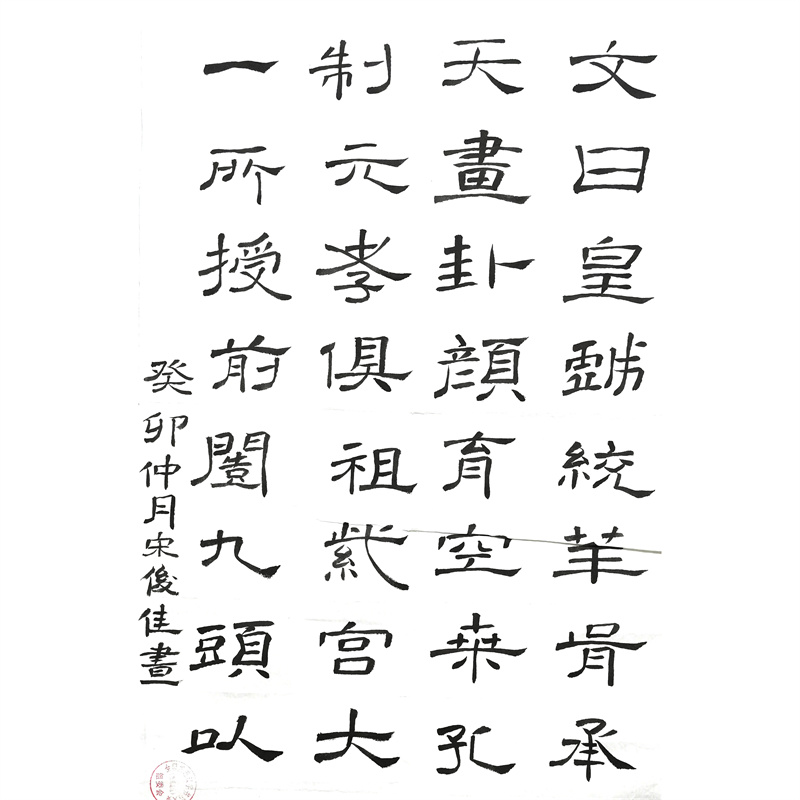 文曰皇戲統華胥承
天畫卦顏育空桑孔
制元孝俱祖紫宮大
一所授前闓九頭以
癸卯仲月宋俊佳書